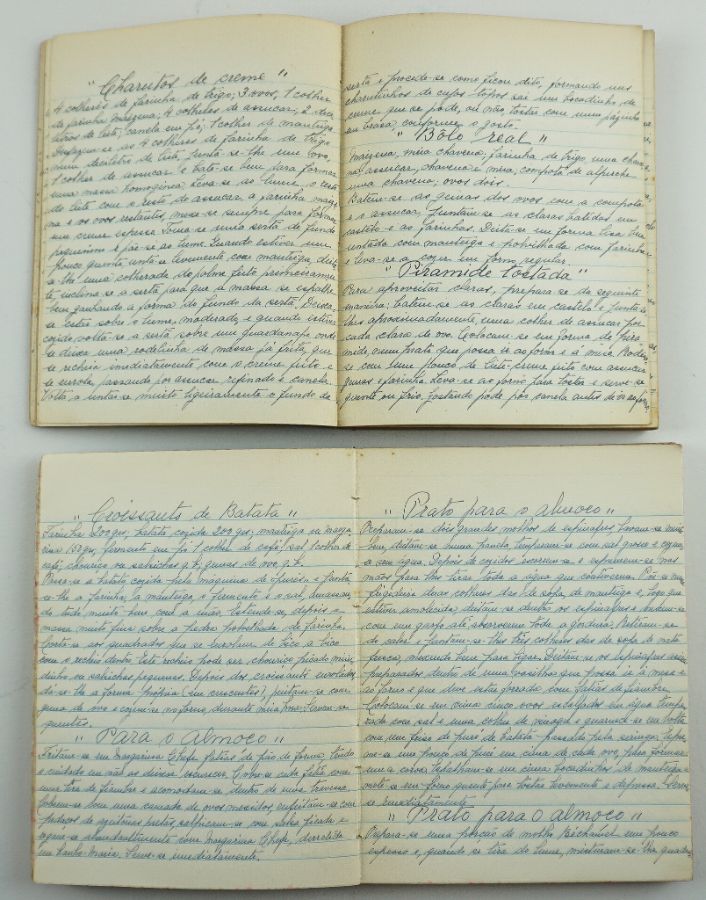 "Charutos de creme"
4 colheres de farinha de trigo; 3 ovos; 1 colher
de farinha maizena; 4 colheres de assucar; 2 deci-
litros de leite; canela em pó; 1 colher de manteiga.
as 4 colheres de farinha de trigo
num decilitro de leite, junta-se-lhe um ovo,
1 colher de assucar e bate-se bem para formar
uma massa homogénea. Leva-se ao lume, o resto
do leite com o resto do assucar, a farinha maize-
na e os ovos restantes, mexe-se sempre para formar
um creme espesso. Toma-se uma sertã de fundo
pequenino e põe-se ao lume. Quando estiver um
pouco quente unta-se levemente com manteiga, deita-
se-lhe uma colherada do polme feito primeiramen-
te, inclina-se a sertã para que a massa se espalhe
bem ganhando a forma do fundo da sertã. Deixa-
se estar sobre o lume, moderado, e quando estiver
cozido volta-se a sertã sobre um guardanapo onde
se deixa uma rodelinha de massa já frita, que
se recheia imediatamente com o creme feito e
se enrola, passando por assucar refinado e canela.
Volta a untar-se muito ligeiramente o fundo da
sertã e procede-se como ficou dito, formando uns
charutinhos de cujos topos sai um bocadinho de
creme que se pode, ou não, tostar com uma pàzinha
em brasa, conforme o gosto.
"Bolo real"
Maizena, meia chavena, farinha de trigo uma chave-
na, assucar, chavena e meia, compota de alperche
uma chavena, ovos dois.
Batem-se as gemas dos ovos com a compota
e o assucar. Juntam-se as claras batidas em
castelo e as farinhas. Deita-se em forma lisa bem
untada com manteiga e polvilhada com farinha
e leva-se a cozer em forno regular.
"Piramide tostada"
Para aproveitar claras, prepara-se da seguinte
maneira: batem-se as claras em castelo e junta-se-
lhes aproximadamente, uma colher de assucar por
cada clara de ovo. Colocam-se em forma de pira-
mide, num prato que possa ir ao forno e á mesa. Rodeia-
se com um pouco de leite-creme feito com assucar,
gemas e farinha. Leva-se ao forno para tostar e serve-se
quente ou frio. Gostando pode pôr canela antes de ir ao forno.
"Croissants de Batata"
Farinha 200 grs; batata cozida 200 grs; manteiga ou marga-
rina grs, fermento em pó 1 colher de café; sal 1 colher de
café; chouriço ou salsichas q.b; gemas de ovo q.b.
Passa-se a batata cozida pela maquina de purée e junta-
se-lhe a farinha, a manteiga o fermento e o sal, amassan-
do tudo muito bem com a mão. Estende-se, depois a
massa muito fina sobre a pedra polvilhada de farinha.
Corta-se aos quadrados que se enrolam de bico a bico
com o recheio dentro. Este recheio pode ser, chouriço picado miu-
dinho ou salsichas pequenas. Depois dos croissants enrolados
dá-se-lhe a forma própria (em crescentes), pintam-se com
gema de ovo e cozem-se no forno, durante meia hora. Servem-se
quentes.
"Para o Almoço"
Fritam-se em Margarina Chefe fatias de pão de forma, tendo
o cuidado em não as deixar torrar. Cobre-se cada fatia com
uma tira de fiambre e acomodam-se dentro de uma travessa.
Cobrem-se com uma camada de ovos mexidos, enfeitam-se com
pedaços de azeitonas pretas, salpicam-se com salsa picada e
regam-se abundantemente com Margarina Chefe, derretida
em banho-Maria. Serve-se imediatamente.
"Prato para o almoço"
Preparam-se dois grandes molhos de espinafres, lavam-se muito
bem, deitam-se numa panela, temperam-se com sal grosso e cozem
a seu agua. Depois de cozidos escorrem-se e espremem-se nas
mãos para lhes tirar toda a água que contiverem. Põe-se na
frigideira duas colheres das de sopa de manteiga e, logo que
estiver amolecida deitam-se dentro os espinafres e mexem-se
com um garfo até absorverem toda a gordura. Retiram-se
do calor e juntam-se-lhes três colheres das de sopa de nata
fresca, mexendo bem para ligar. Deitam-se os espinafres assim
preparados dentro de uma vasilha que possa ir á mesa e
ao forno e que deve estar forrada com fatias de fiambre.
Colocam-se em cima cinco ovos escalfados em água tempe-
rada com sal e uma colher de vinagre e guarnece-se em volta
com um friso de puré de batata passado pela seringa, depon-
do-se um pouco de puré em cima de cada ovo, para formar
uma coroa. Espalham-se em cima bocadinhos de manteiga e
mete-se em forno quente para tostar levemente e depressa. Serve-
se imediatamente.
"Prato para o almoço"
Prepara-se uma porção de molho Béchamel um pouco
espesso e, quando se tira do lume, misturam-se-lhe